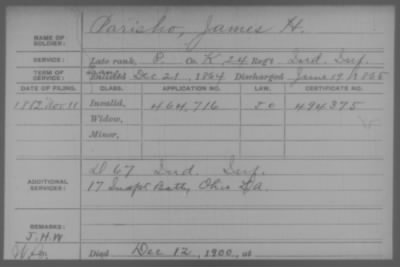 NAME OF SOLDIER: Parisho, James H.
SERVICE: Late rank, P. Co K, 24 Regt. Ind. Inf.
TERM OF SERVICE: Enlisted Dec 21, 1864 Discharged June 19, 1865
DATE OF FILING. CLASS. APPLICATION NO. LAW. CERTIFICATE NO.
1882 Nov 11 Invalid, 464,716 494375
Widow,
Minor,
ADDITIONAL SERVICES: D 67 Ind. Inf.
17 Batty, Ohio L.A.
REMARKS:
J.H.W
Died Dec 12, 1900, at